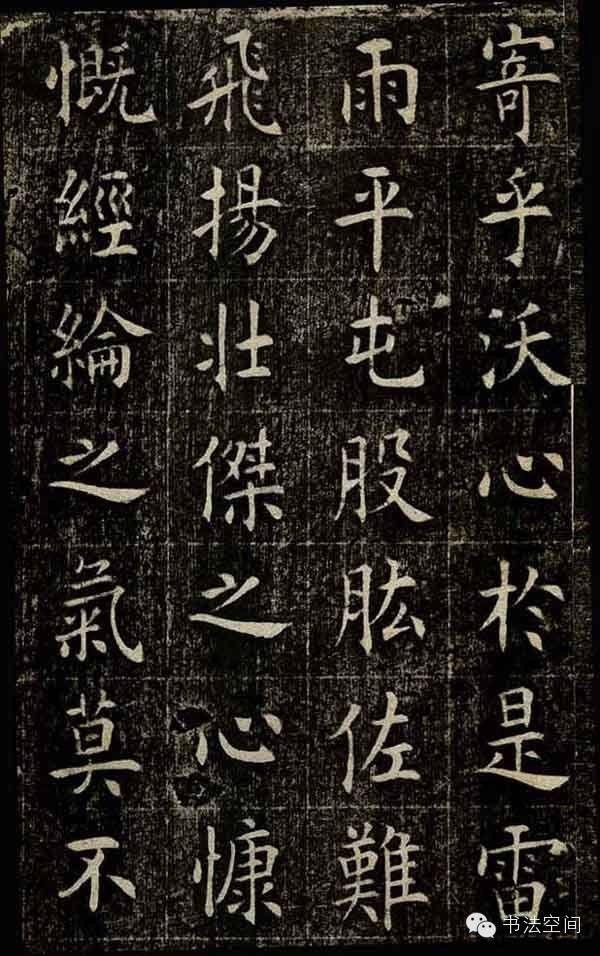 寄乎沃心於是雷
雨平屯股肱佐難
飛揚壯傑之心慷
慨經綸之氣莫不
书法空间